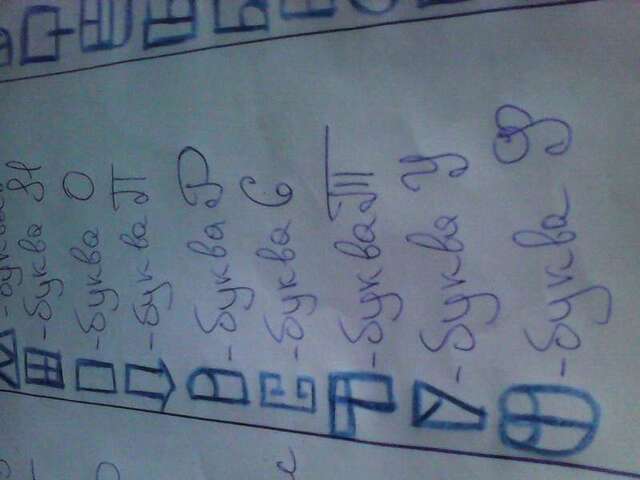 - буква Н
- буква О
- буква П
- буква Р
- буква С
- буква Т
- буква У
- буква Ф